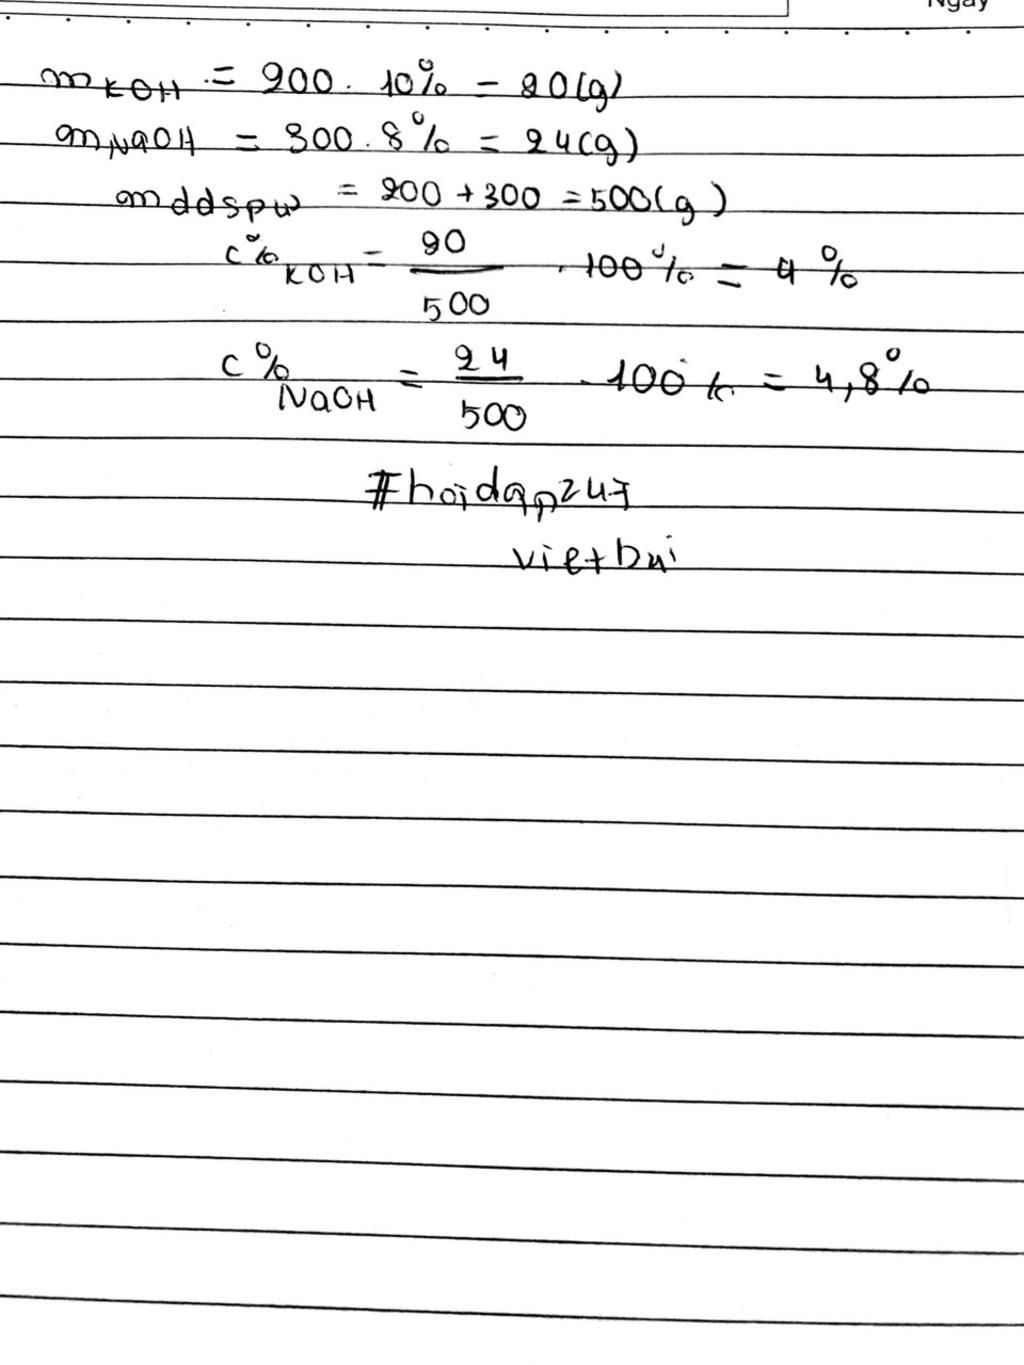 Ngày
mKOH = 200 . 10% = 20(g)
mNaOH = 300 . 8% = 24(g)
mddspu = 200 + 300 = 500(g)
C%KOH = 20/500 . 100% = 4%
C%NaOH = 24/500 . 100% = 4,8%
#hoidap247
vietbui